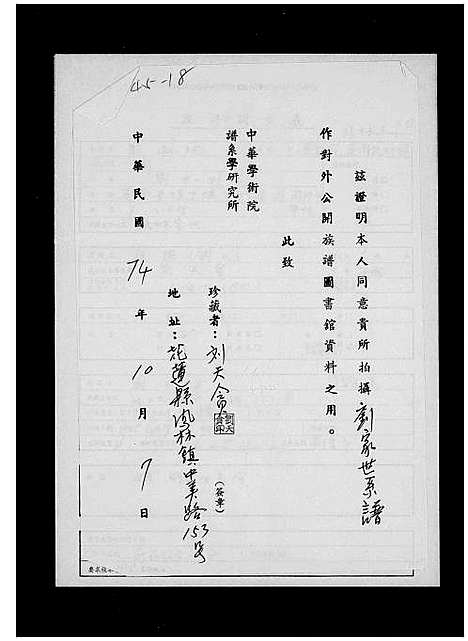 45-18
茲證明本人同意貴所拍攝劉家世系譜
作對外公開族譜圖書館資料之用。
此致
中華學術院
譜系學研究所
珍藏者：刘天
(簽章)
地址：花蓮縣鳳林鎮中美路153号
中華民國74年10月7日